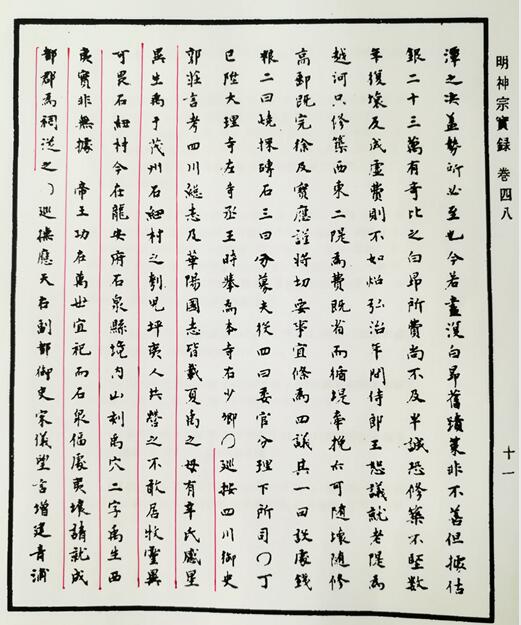 明神宗實錄 卷四八
十一
潭之决蓋勢所必至也今若盡復白昂舊蹟策非不善但據估
銀二十三萬有奇比之白昂所費尚不及半誠恐修築不堅數
年復壞反成虛費則不如炤弘治年間侍郎王恕議就老隄為
越河只修築西東二隄為費既省而循堤牽挽亦可隨壞隨修
高郵既完徐及寶應謹將切要事宜條為四議其一曰設處錢
粮二曰燒採磚石三曰召募夫役四曰委官分理下所司○丁
巳陞大理寺左寺丞王時舉為本寺右少卿○巡按四川御史
郭莊言考四川總志及華陽國志皆載夏禹之母有莘氏感星
異生禹于茂州石紐村之刳兒坪夷人共營之不敢居牧靈異
可畏石紐村今在龍安府石泉縣境內山刻禹穴二字禹生西
夷實非無據 帝王功在萬世宜祀而石泉偏處夷壤請就成
都郡為祠從之○巡撫應天右副都御史宋儀望言增建青浦